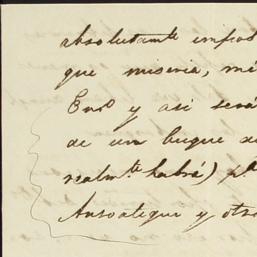 absolutamte impos
que miseria, mé
Eno y asi será
de un buque de
realmte habrá) pa
Ansoategui y otro